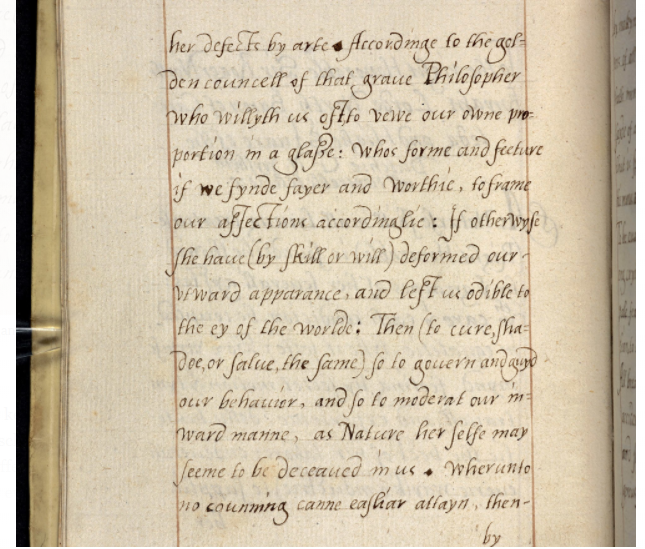 her defects by arte. Accordinge to the gol=
den councell of that graue Philosopher
who willyth us oft to vewe our owne pro=
portion in a glasse: whos forme and fecture
if we fynde fayer and worthie, to frame
our affections accordinglie: If otherwyse
she haue (by skill or will) deformed our
vtward apparance, and left us odible to
the ey of the worlde: Then (to cure, sha=
doe, or salue, the same) so to govern and guyd
our behavior, and so to moderat our in=
ward manne, as Nature her selfe may
seeme to be deceaued in us. Wherunto
no counning canne easliar attayn, then
by